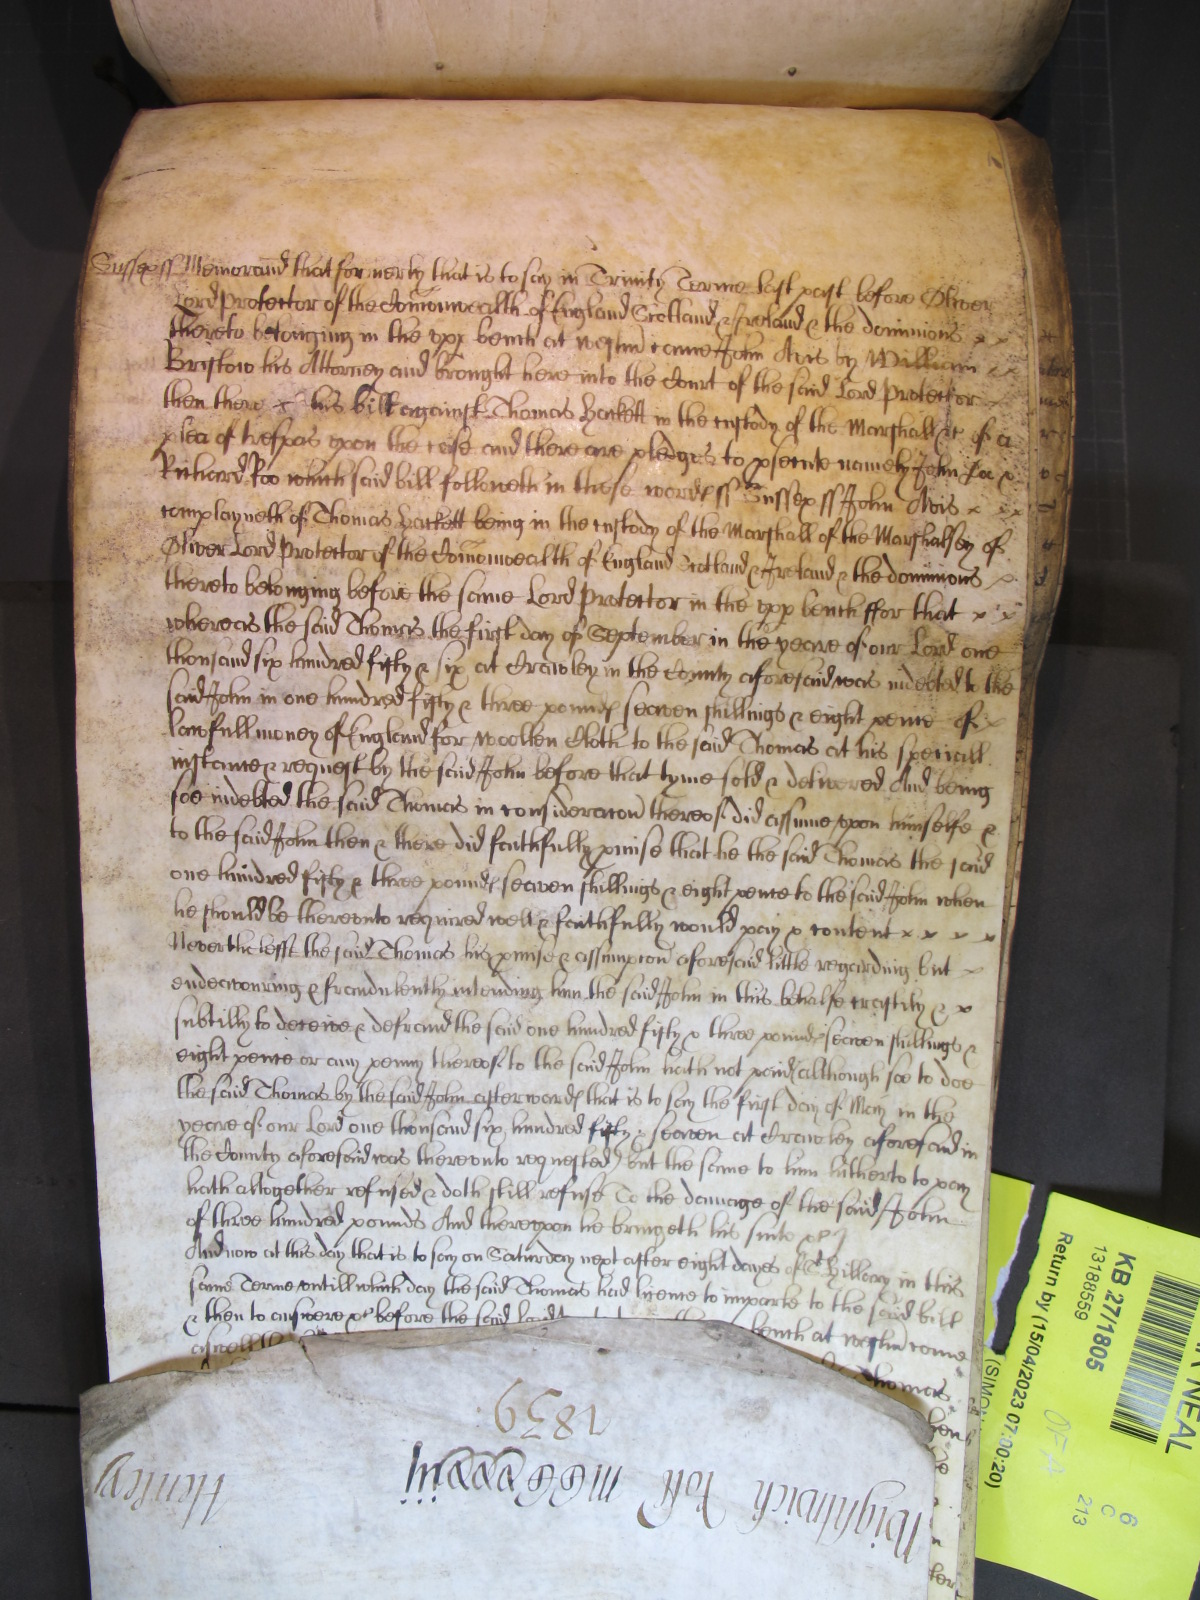 Sussex ss Memorand that formerly that is to say in Trinity Terme last past before Oliver
Lord Protector of the Comonwealth of England Scotland & Ireland & the dominions x x
thereto belonging in the upp bench at Westm came John Avis by William x x
Bristow his Attorney and brought here into the Court of the said Lord Protector x
then there x his bill against Thomas Hackett in the custody of the Marshall &c of a
plea of trespas upon the case and there are pledges to psecute namely John Doe &
Richard Roo which said bill followeth in these words ss Sussex ss John Avis x x x
complayneth of Thomas Hackett being in the custody of the Marshall of the Marshalsey of
Oliver Lord Protector of the Comonwealth of England Scotland & Ireland & the dominions x
thereto belonging before the same Lord Protector in the upp bench ffor that x x
whereas the said Thomas the first day of September in the yeare of our Lord one
thousand six hundred fifty & six at Crawley in the County aforesaid was indebted to the
said John in one hundred fifty & three pounds seaven shillings & eight pence of x
lawfull money of England for woollen Cloth to the said Thomas at his speciall
instance & request by the said John before that tyme sold & delivered And being
soe indebted the said Thomas in consideracon thereof did assume upon himselfe &
to the said John then & there did faithfully pmise that he the said Thomas the said
one hundred fifty & three pounds seaven shillings & eight pence to the said John when
he should be thereunto required well & faithfully would pay & content x x x x
Neverthelesse the said Thomas his pmise & assumpcon aforesaid little regarding but x
endeavouring & fraudulently intending him the said John in this behalfe craftily & x
subtilly to deceive & defraud the said one hundred fifty & three pounds seaven shillings &
eight pence or any penny thereof to the said John hath not paid (although soe to doe
the said Thomas by the said John afterwards that is to say the first day of May in the
yeare of our Lord one thousand six hundred fifty & seaven at Crawley aforesaid in
the County aforesaid was thereunto requested) but the same to him hitherto to pay
hath altogether refused & doth still refuse To the damage of the said John
of three hundred pounds And thereupon he bringeth his suite &c
And now at this day that is to say on Saturday next after eight dayes of St Hillary in this
same Terme untill which day the said Thomas had licence to imparle to the said bill
& then to answere &c before the said Lord bench at Westm come
aswell
Thomas
1839
Wightwich Roll MCCxxxiiij
Henley
NEAL
KB 27/1805
13188559
Return by (15/04/2023 07:00:20)
(SIMO
6
C
213